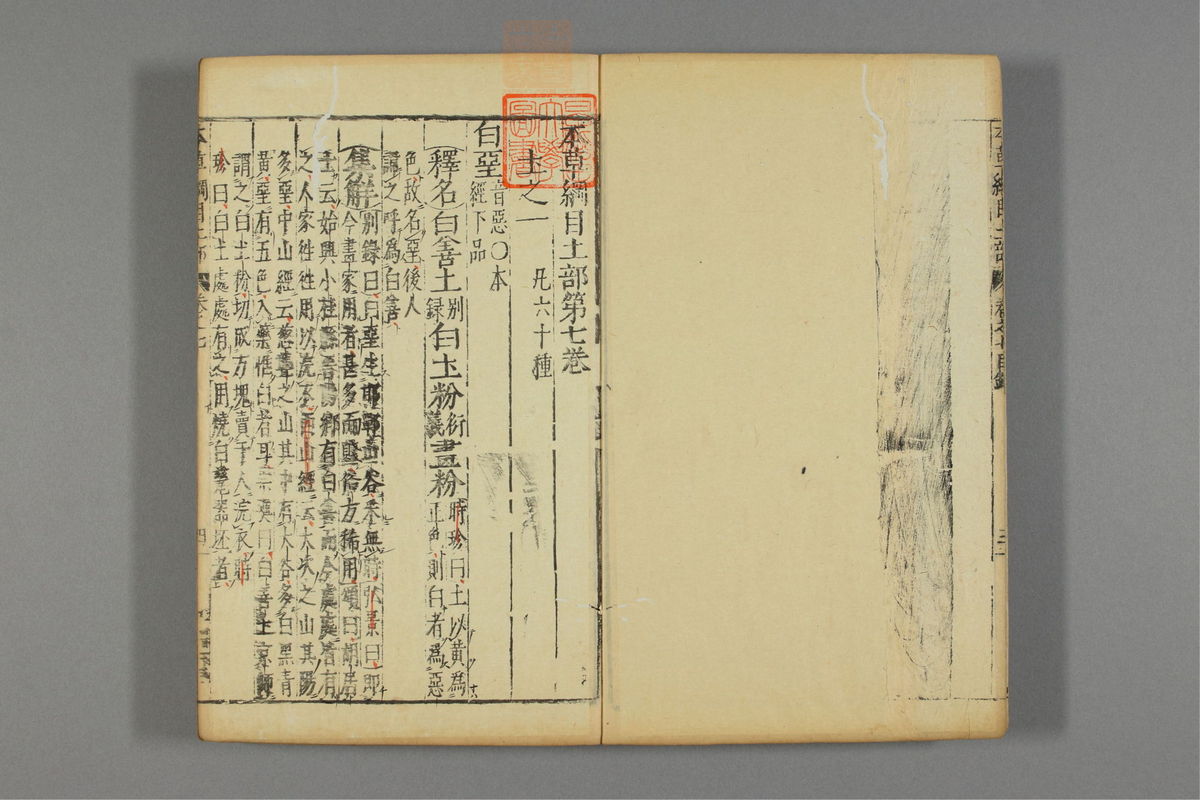 本草綱目土部第七巻
土之一 凡六十種
白堊 音惡○本經下品
釋名 白善土 别録 白土粉 衍義 畫粉 時珍曰土以黃為正色則白者為惡
色故名堊後人
諱之呼為白善
集解 别録曰白堊生邯鄲山谷采無時弘景曰即
今畫家用者甚多而賤俗方稀用頌曰胡居
士云始興小桂縣晉陽鄉有白善而今處處皆有
之人家往往用以浣衣西山經云大次之山其陽
多堊中山經云葱聾之山其中有大谷多白黑青
黃堊有五色入藥惟白者耳宗奭曰白善土京師
謂之白土粉切成方塊賣于人浣衣時
珍曰白土處處有之用燒白瓷器坯者